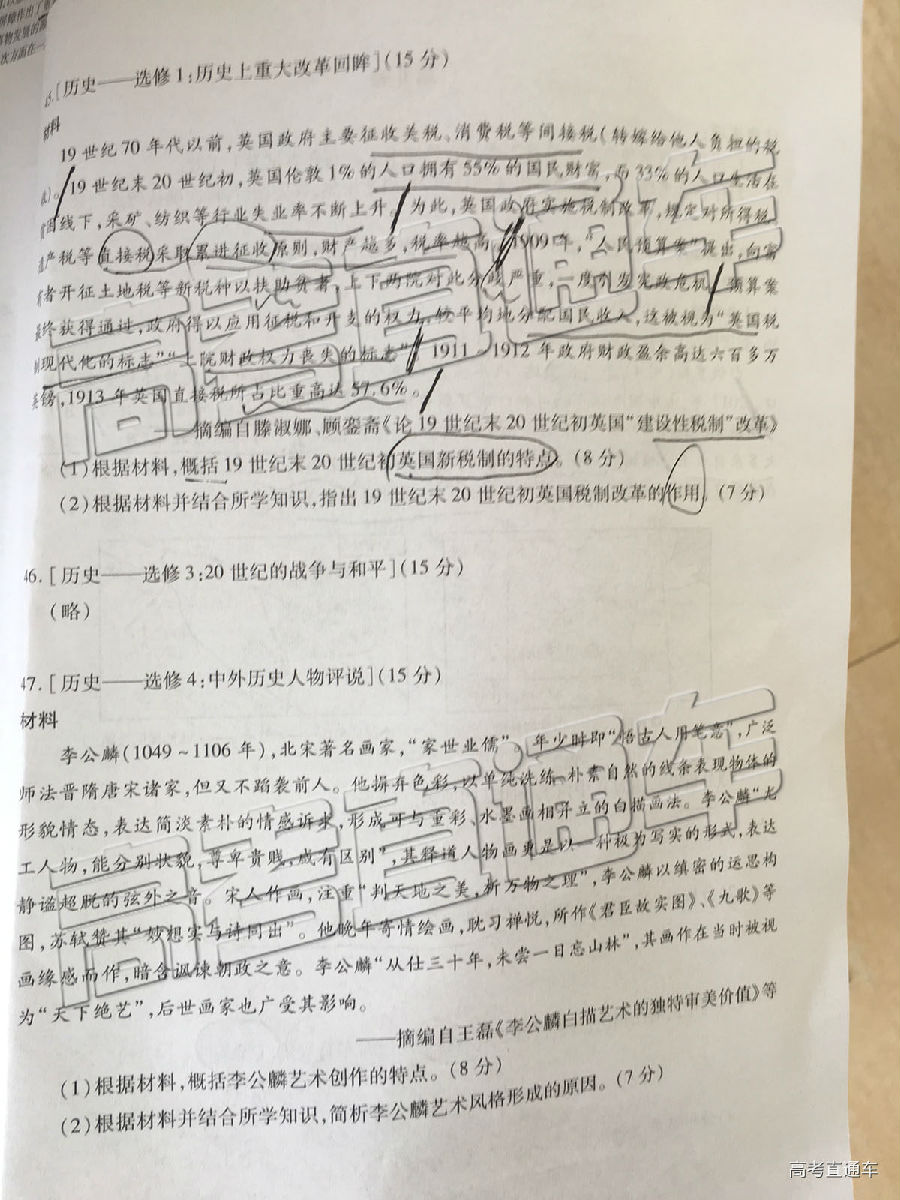 [历史——选修1:历史上重大改革回眸](15分)
材料
19世纪70年代以前,英国政府主要征收关税、消费税等间接税(转嫁给他人负担的税
19世纪末20世纪初,英国伦敦1%的人口拥有55%的国民财富,而33%的人口生活在
困线下,采矿、纺织等行业失业率不断上升。为此,英国政府实施税制改革,规定对所得税
遗产税等直接税采取累进征收原则,财产越多,税率越高。1909年,“人民预算案”提出,向富
者开征土地税等新税种以扶助贫者,上下两院对此分歧严重,一度引发宪政危机。预算案
最终获得通过,政府得以应用征税和开支的权力,较平均地分配国民收入,这被视为“英国税
制现代化的标志”“上院财政权力丧失的标志”。1911~1912年政府财政盈余高达六百多万
英镑,1913年英国直接税所占比重高达57.6%。
——摘编自滕淑娜、顾銮斋《论19世纪末20世纪初英国“建设性税制”改革》
(1)根据材料,概括19世纪末20世纪初英国新税制的特点。(8分)
(2)根据材料并结合所学知识,指出19世纪末20世纪初英国税制改革的作用。(7分)
46.[历史——选修3:20世纪的战争与和平](15分)
(略)
47.[历史——选修4:中外历史人物评说](15分)
材料
李公麟(1049~1106年),北宋著名画家,“家世业儒”。年少时即“悟古人用笔意”,广泛
师法晋隋唐宋诸家,但又不蹈袭前人。他摒弃色彩,以单纯洗练、朴素自然的线条表现物体的
形貌情态,表达简淡素朴的情感诉求,形成可与重彩、水墨画相并立的白描画法。李公麟“尤
工人物,能分别状貌,尊卑贵贱,咸有区别”,其释道人物画更是以一种极为写实的形式,表达
静谧超脱的弦外之音。宋人作画,注重“判天地之美,析万物之理”,李公麟以缜密的运思构
图,苏轼赞其“妙想实与诗同出”。他晚年寄情绘画,耽习禅悦,所作《君臣故实图》、《九歌》等
画缘感而作,暗含讽谏朝政之意。李公麟“从仕三十年,未尝一日忘山林”,其画作在当时被视
为“天下绝艺”,后世画家也广受其影响。
——摘编自王磊《李公麟白描艺术的独特审美价值》等
(1)根据材料,概括李公麟艺术创作的特点。(8分)
(2)根据材料并结合所学知识,简析李公麟艺术风格形成的原因。(7分)
高考直通车